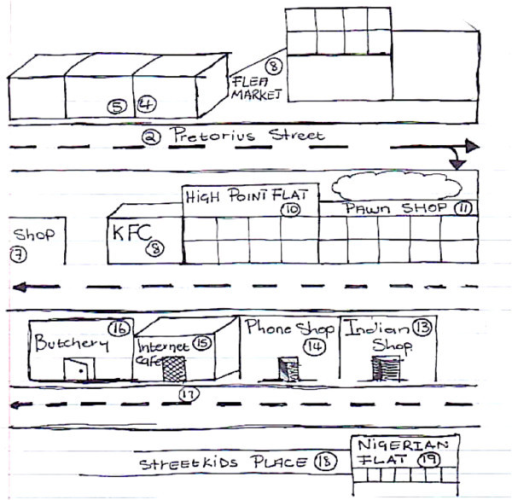 ⑧
FLEA
MARKET
⑤ ④
② Pretorius Street
HIGH POINT FLAT
⑩
PAWN SHOP ⑪
Shop
⑦
KFC
⑧
Butchery ⑯
Internet ⑮
Cafe
Phone Shop
⑭
Indian ⑬
Shop
⑰
STREETKIDS PLACE ⑱
NIGERIAN
FLAT ⑲